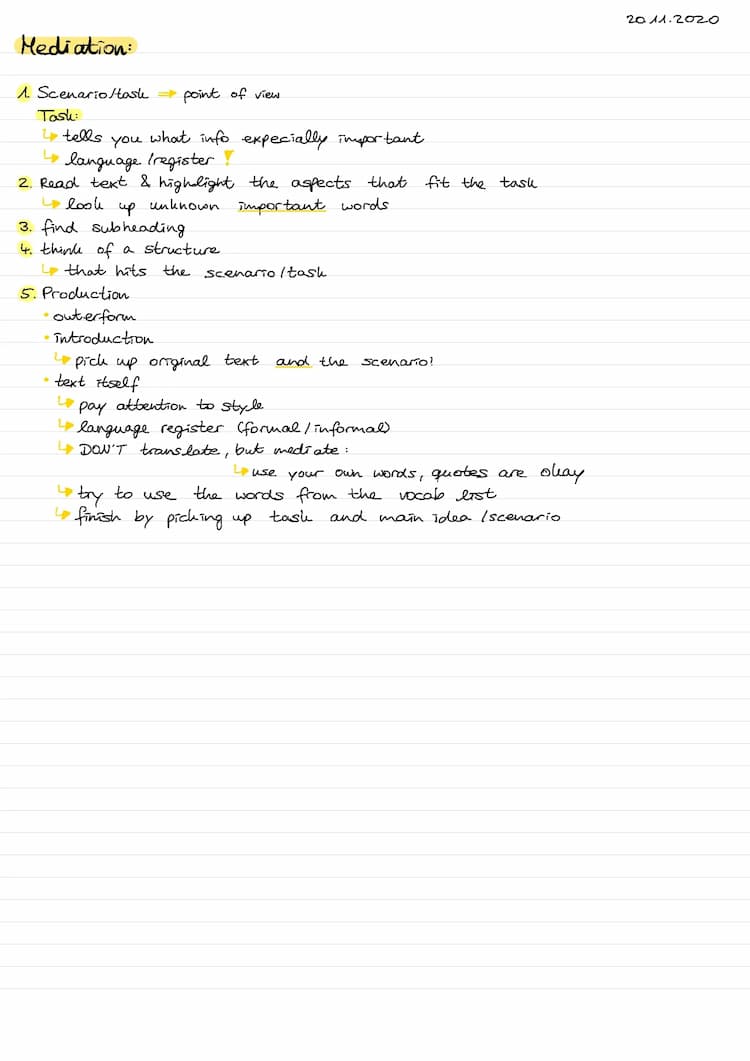 20.11.2020
Mediation:
1. Scenario/task ⇒ point of view
Task:
↳ tells you what info expecially important
↳ language/register !
2. Read text & highlight the aspects that fit the task
↳ look up unknown important words
3. find subheading
4. think of a structure
↳ that hits the scenario/task
5. Production
• outerform
• introduction
↳ pick up original text and the scenario!
• text itself
↳ pay attention to style
↳ language register (formal/informal)
↳ DON'T translate, but mediate:
↳ use your own words, quotes are okay
↳ try to use the words from the vocab list
↳ finish by picking up task and main idea/scenario